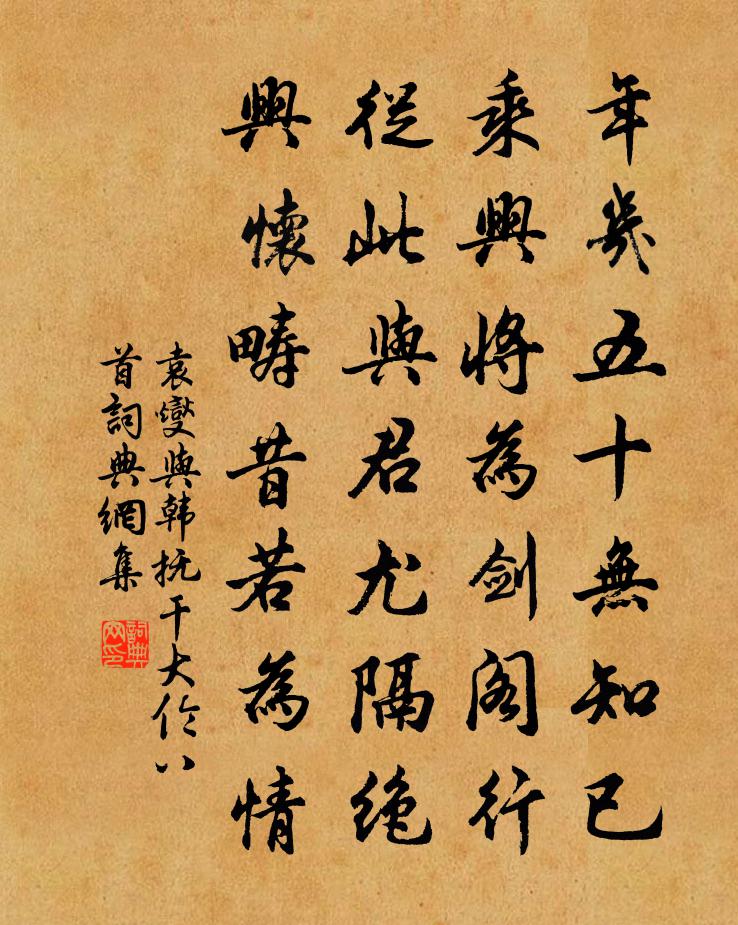 年幾五十無知已
乘興將為劍閣行
從此與君尤隔絶
興懷疇昔若為情
袁燮與韩抚干大伦八
首詞典網集
詞典網印